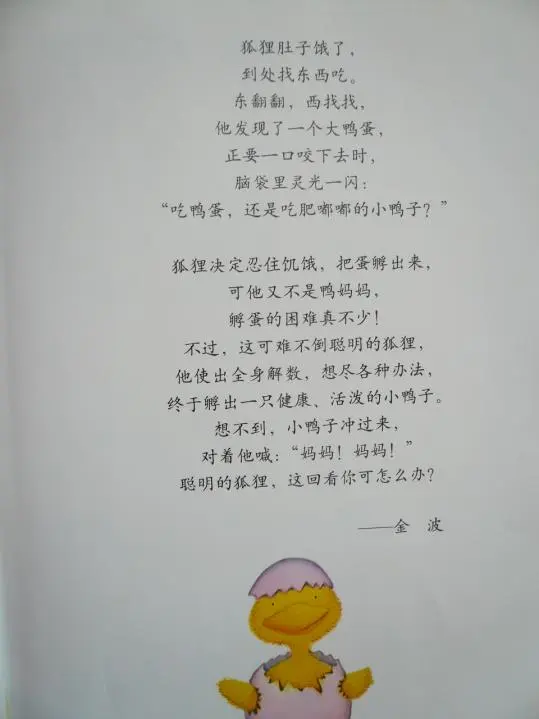 狐狸肚子饿了，
到处找东西吃。
东翻翻，西找找，
他发现了一个大鸭蛋，
正要一口咬下去时，
脑袋里灵光一闪：
“吃鸭蛋，还是吃肥嘟嘟的小鸭子？”
狐狸决定忍住饥饿，把蛋孵出来，
可他又不是鸭妈妈，
孵蛋的困难真不少！
不过，这可难不倒聪明的狐狸，
他使出全身解数，想尽各种办法，
终于孵出一只健康、活泼的小鸭子。
想不到，小鸭子冲过来，
对着他喊：“妈妈！妈妈！”
聪明的狐狸，这回看你可怎么办？
——金　波